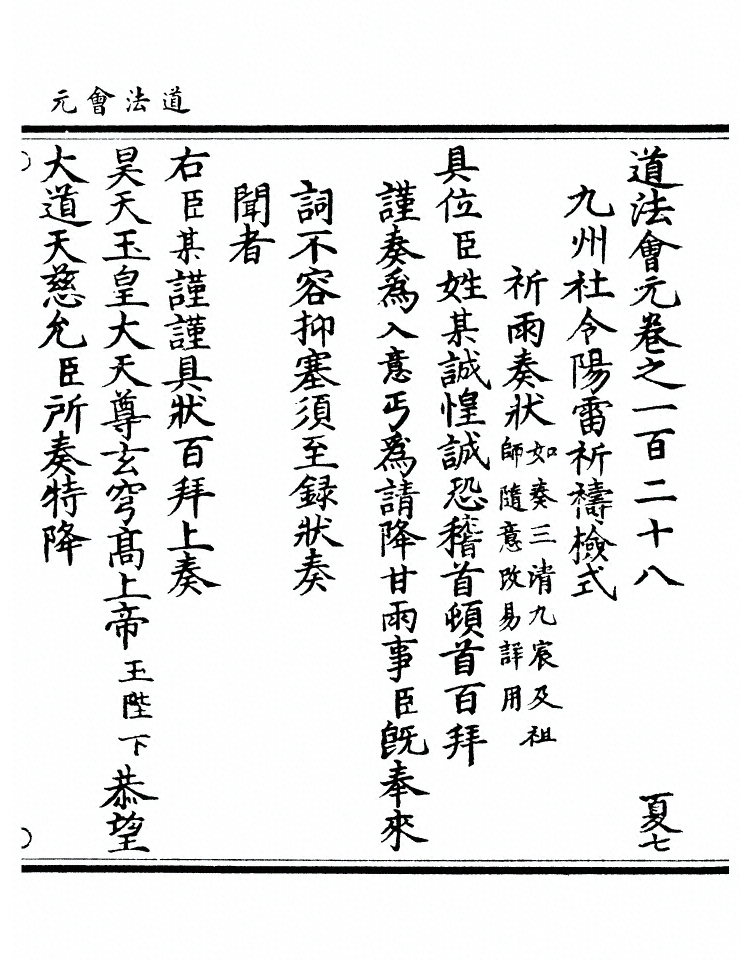 道法會元
道法會元卷之一百二十八
夏七
九州社令陽雷祈禱檢式
祈雨奏狀如奏三清九宸及祖師隨意改易詳用
具位臣姓某誠惶誠恐稽首頓首百拜
謹奏爲入意丐爲請降甘雨事臣旣奉來
詞不容抑塞須至録狀奏
聞者
右臣某謹謹具狀百拜上奏
昊天玉皇大天尊玄穹高上帝玉陛下恭望
大道天慈允臣所奏特降